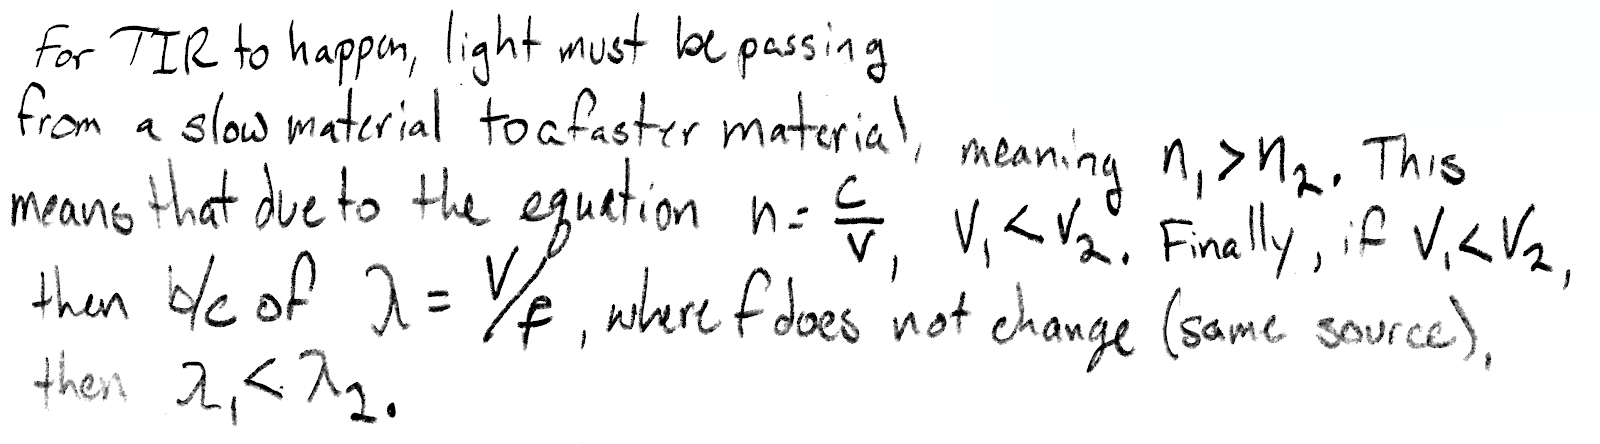 For TIR to happen, light must be passing
from a slow material to a faster material, meaning n₁ > n₂. This
means that due to the equation n = c/v, v₁ < v₂. Finally, if v₁ < v₂,
then b/c of λ = v/f, where f does not change (same source),
then λ₁ < λ₂.